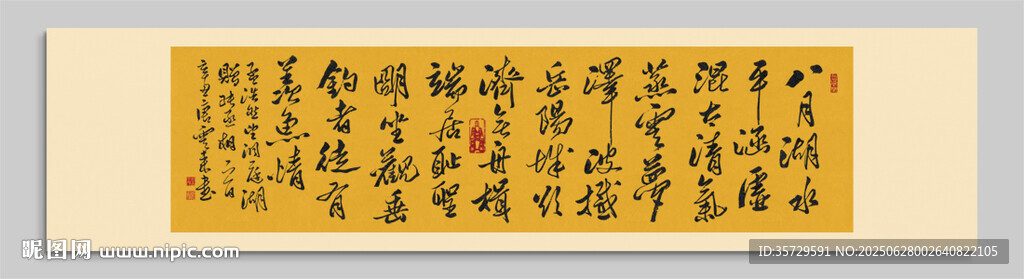 八月湖水
平涵虛
混太清氣
蒸雲夢
澤波撼
岳陽城欲
濟無舟楫
端居恥聖
明坐觀垂
釣者徒有
羨魚情
孟浩然望洞庭湖
贈張丞相
辛丑唐雲來書
昵图网 www.nipic.com
ID:35729591 NO:20250628002640822105